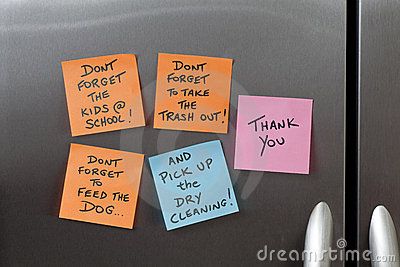 DONT
FORGET
THE
KIDS @
SCHOOL!
DONT
FORGET
TO TAKE
THE
TRASH OUT!
THANK
YOU
DONT
FORGET
TO
FEED THE
DOG...
AND
PICK UP
the
DRY
CLEANING!
dreamstime.com